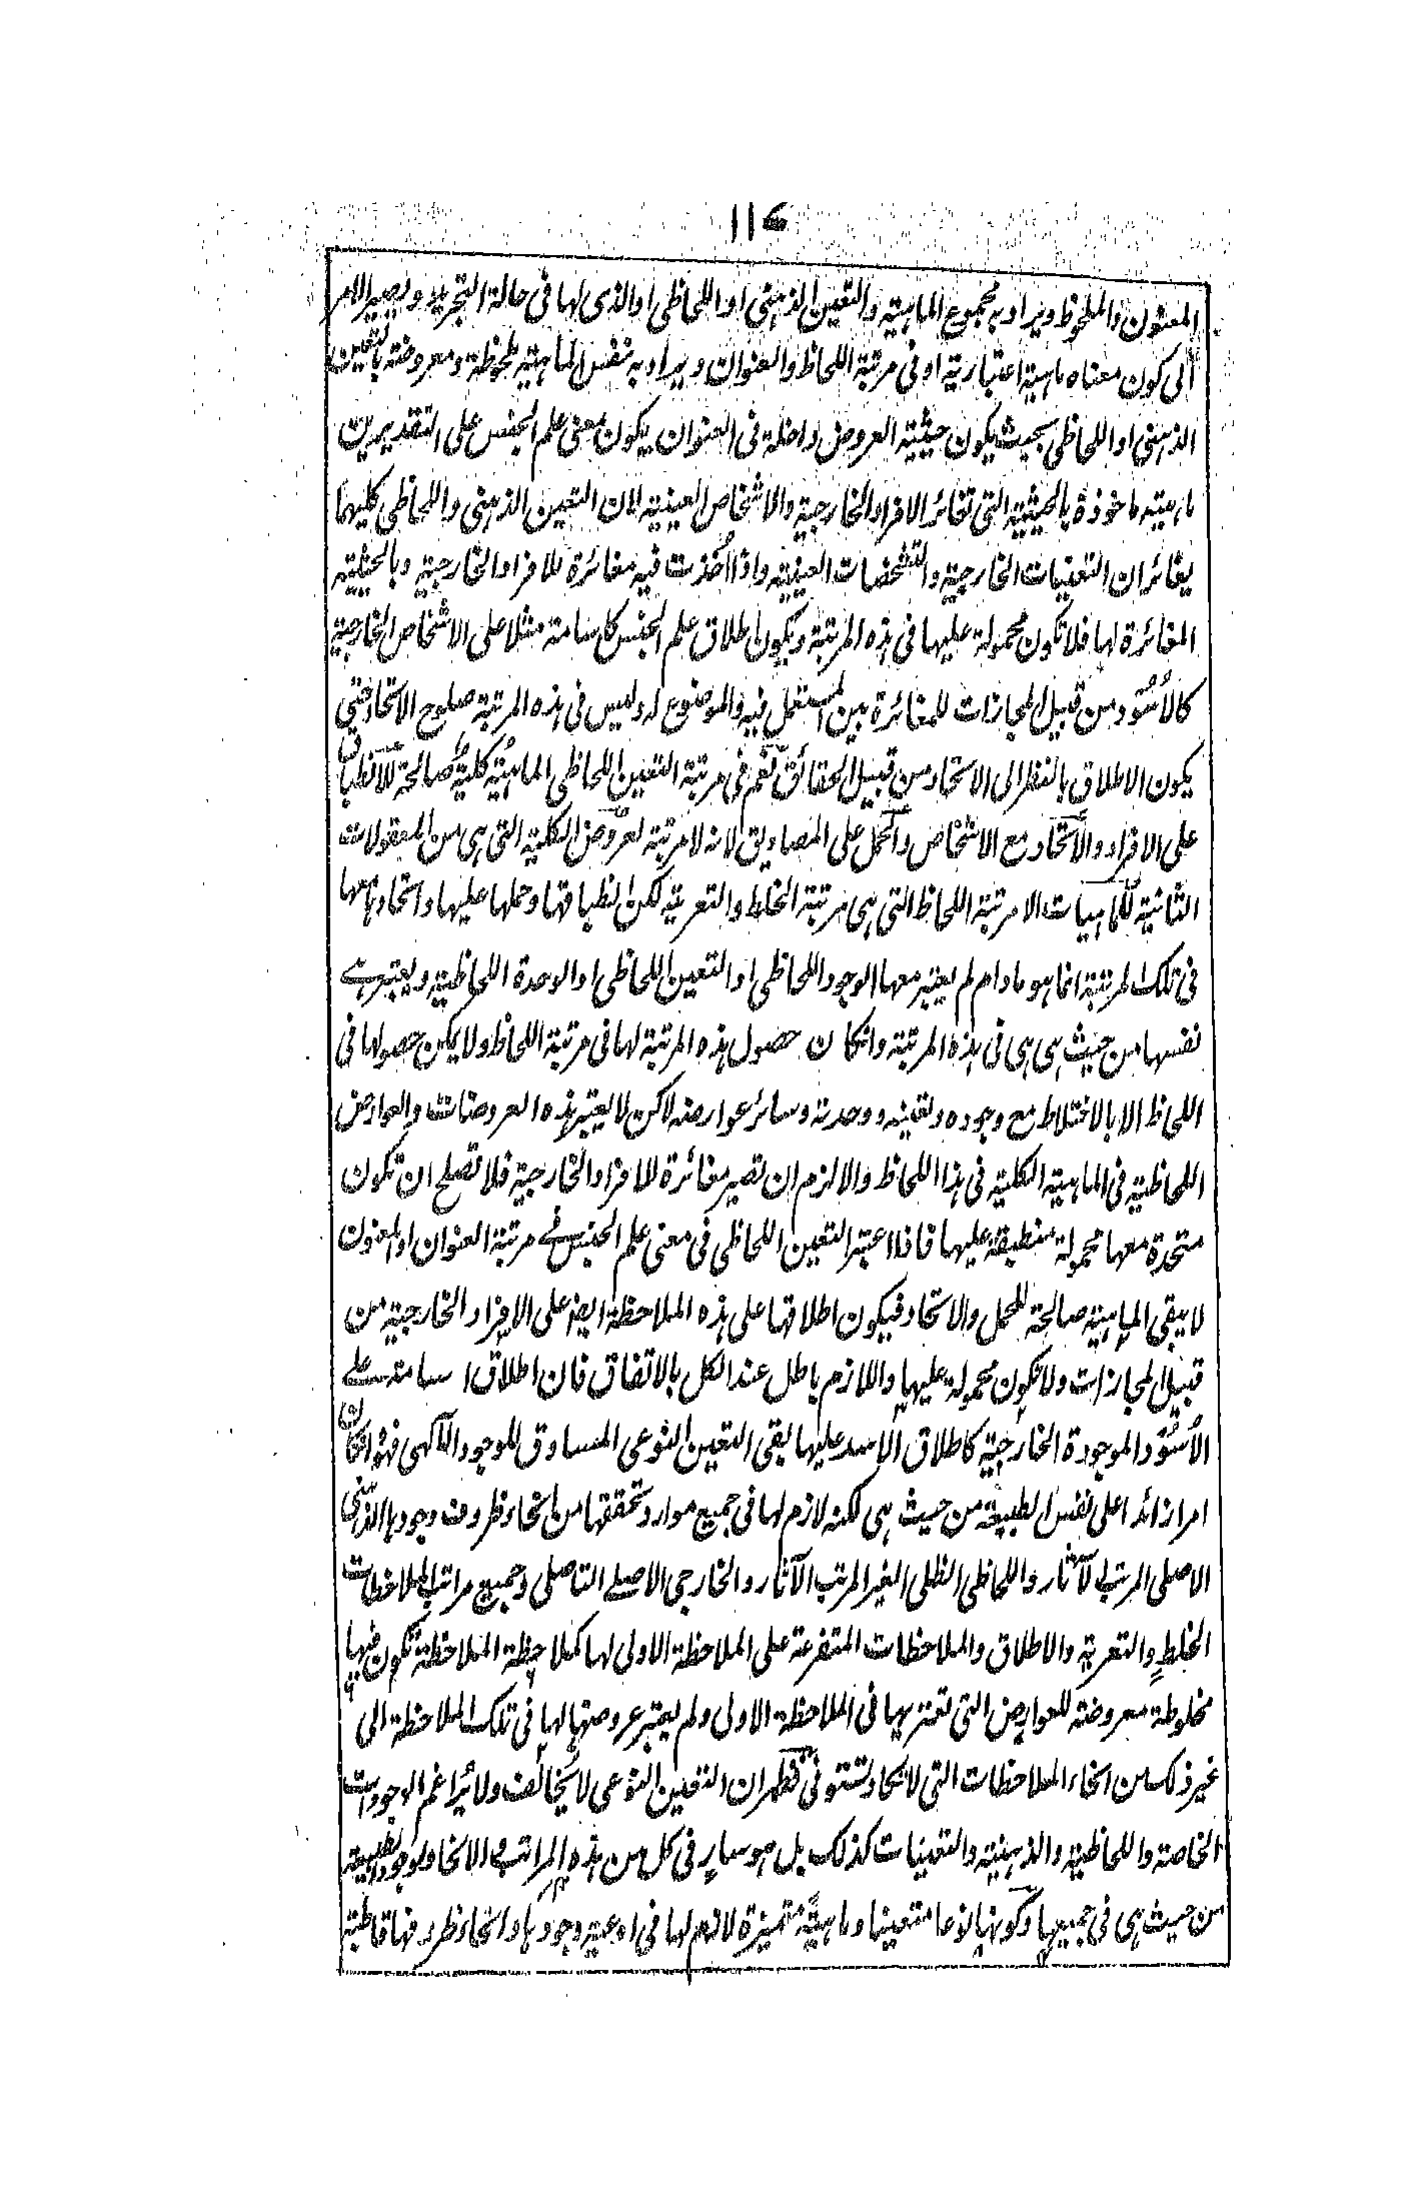 ١١٧
المعنون والملحوظ ويراد به مجموع الماهية والتعين الذهنى او اللحاظى او الذى لها فى حالة التجريد ويصير الامر
الى كون معناه ماهية اعتبارية او فى مرتبة اللحاظ والعنوان ويراد به نفس الماهية ملحوظة ومعروضة بالتعين
الذهنى او اللحاظى بحيث يكون حيثية العروض داخلة فى العنوان يكون معنى علم الجنس على التقديرين
ماهية ماخوذة بالحيثية التى تغائر الافراد الخارجية والاشخاص العينية لان التعين الذهنى واللحاظى كليهما
يغائران التعينات الخارجية والتشخصات العينية واذا اخذت فيه مغائرة للافراد الخارجية وبالحيثية
المغائرة لها فلا تكون محمولة عليها فى هذه المرتبة ويكون اطلاق علم الجنس كاسامة مثلا على الاشخاص الخارجية
كالأُسُود من قبيل المجازات للمغائرة بين المستعمل فيه والموضوع له وليس فى هذه المرتبة صلوح الاتحاد حتى
يكون الاطلاق بالنظر الى الاتحاد من قبيل الحقائق نعم فى مرتبة التعين اللحاظى الماهية كلية صالحة للانطباق
على الافراد والاتحاد مع الاشخاص والحمل على المصاديق لانه لا مرتبة لعروض الكلية التى هى من المعقولات
الثانية للماهيات الا مرتبة اللحاظ التى هى مرتبة الخلط والتعرية لكن انطباقها وحملها عليها واتحادها معها
فى تلك المرتبة انما هو ما دام لم يعتبر معها الوجود اللحاظى او التعين اللحاظى او الوحدة اللحاظية ويعتبر هى
نفسها من حيث هى هى فى هذه المرتبة وانكان حصول هذه المرتبة لها فى مرتبة اللحاظ ولا يمكن حصولها فى
اللحاظ الا بالاختلاط مع وجوده وتعينه ووحدته وسائر عوارضه لاكن لا يعتبر هذه العروضات والعوارض
اللحاظية فى الماهية الكلية فى هذا اللحاظ والا لزم ان تصير مغائرة للافراد الخارجية فلا تصلح ان تكون
متحدة معها محمولة منطبقة عليها فاذا اعتبر التعين اللحاظى فى معنى علم الجنس فى مرتبة العنوان او المعنون
لا يبقى الماهية صالحة للحمل والاتحاد فيكون اطلاقها على هذه الملاحظة ايضا على الافراد الخارجية من
قبيل المجازات ولا تكون محمولة عليها واللازم باطل عند الكل بالاتفاق فان اطلاق اسامة على
الأُسُود الموجودة الخارجية كاطلاق الاسد عليها بقى التعين النوعى المساوق للوجود الالٓهى فهو انكان
امرا زائدا على نفس الطبيعة من حيث هى لكنه لازم لها فى جميع موارد تحققها من انحاء ظروف وجودها الذهنى
الاصلى المرتب الآثار واللحاظى الظلى الغير المرتب الآثار والخارجى الاصلى التاصلى وجميع مراتب الملاحظات
الخلط والتعرية والاطلاق والملاحظات المتفرعة على الملاحظة الاولى لها كملاحظة الملاحظة تكون فيها
مخلوطة معروضة للعوارض التى تعتريها فى الملاحظة الاولى ولم يعتبر عروضها لها فى تلك الملاحظة الى
غير ذلك من انحاء الملاحظات التى لا تكاد تستوفى فظهر ان التعين النوعى لا يخالف ولا يراغم الوجودات
الخاصة واللحاظية والذهنية والتعينات كذلك بل هو سار فى كل من هذه المراتب والانحاء لوجود الطبيعة
من حيث هى فى جميعها وكونها نوعا متعينا وماهية متميزة لازم لها فى اوعية وجودها وانحاء ظروفها قاطبة